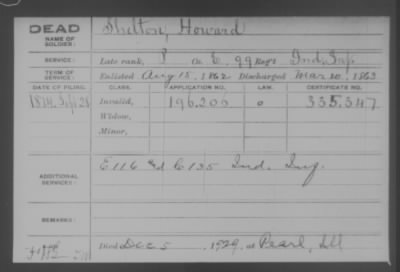 DEAD
NAME OF SOLDIER: Shelton, Howard
SERVICE: Late rank, P Co. E, 99 Reg't Ind. Inf.
TERM OF SERVICE: Enlisted Aug 15, 1862 Discharged Mar. 20, 1863
DATE OF FILING. CLASS. APPLICATION NO. LAW. CERTIFICATE NO.
Sept 28 Invalid, 196.200 o 335.347
Widow,
Minor,
ADDITIONAL SERVICES: E 116 & C 135 Ind. Inf.
REMARKS:
Died Dec 5, 1929, at Pearl, Ill